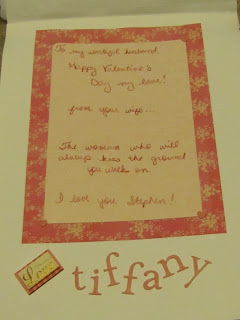 To my wonderful husband,
Happy Valentine's
Day my love!
from your wife...
The woman who will
always kiss the ground
you walk on.
I love you Stephen!
Love
tiffany